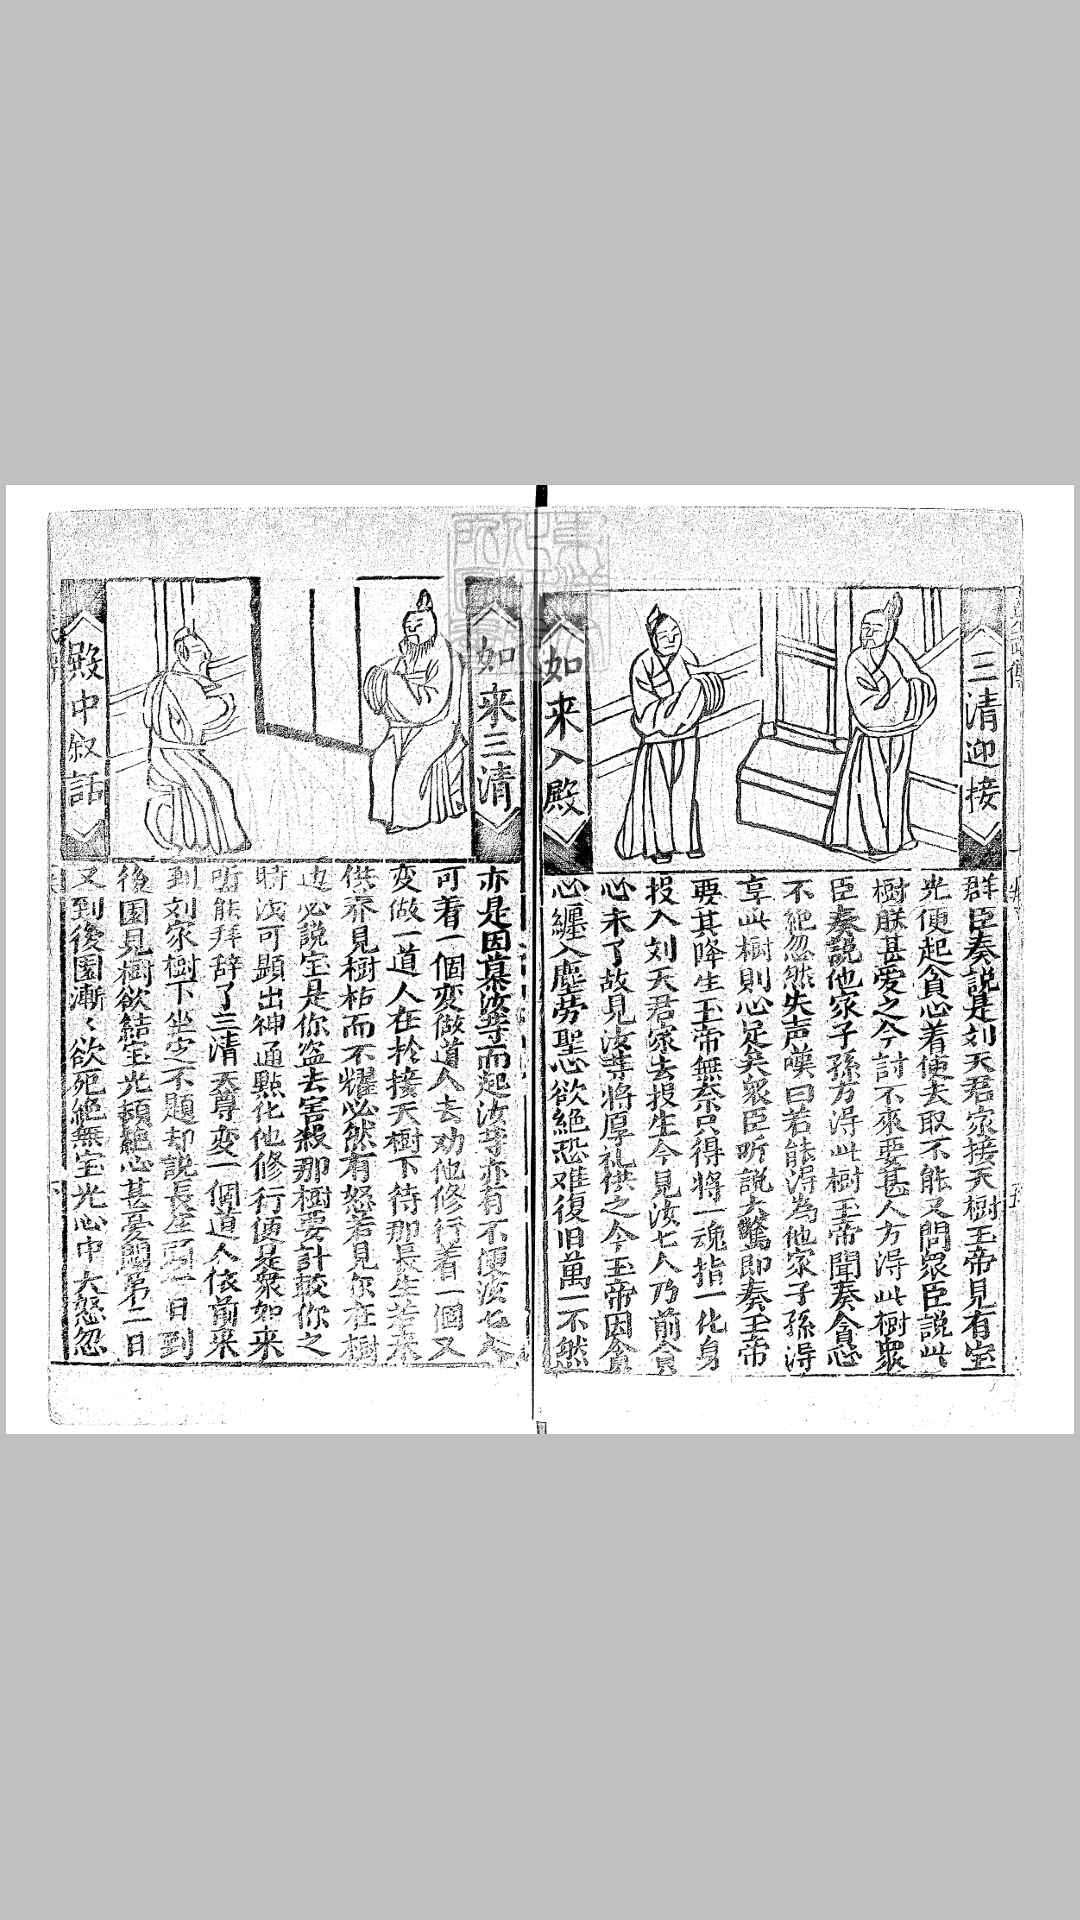 三清迎接
如来入殿
群臣奏説是刘天君家接天樹玉帝見有宝
光便起貪心着使去取不能又問眾臣説此
樹朕甚愛之今討不來要甚人方得此樹眾
臣奏説他家子孫方得此樹玉帝聞奏貪恋
不絶忽然失声嘆曰若能得為他家子孫得
享此樹則心足矣眾臣听説大驚即奏玉帝
要其降生玉帝無奈只得將一魂指一化身
投入刘天君家去投生今見汝七人乃前貪
心未了故見汝等將厚礼供之今玉帝因貪
心纏入塵劳聖心欲絶恐难復旧萬一不然
如来三清
殿中叙話
亦是因慕汝等而起汝等亦有不便汝七人
可着一個変做道人去劝他修行着一個又
変做一道人在於接天樹下待那長生若来
供养見樹枯而不耀必然有怒若見你在樹
边必説宝是你盗去害殺那樹要計較你之
時汝可顕出神通點化他修行便是衆如来
听能拜辞了三清天尊変一個道人依前来
到刘家樹下坐定不題却説長生一日到
後園見樹欲結宝光頓絶心甚憂悶第二日
又到後園漸〻欲死絶無宝光心中大怒忽